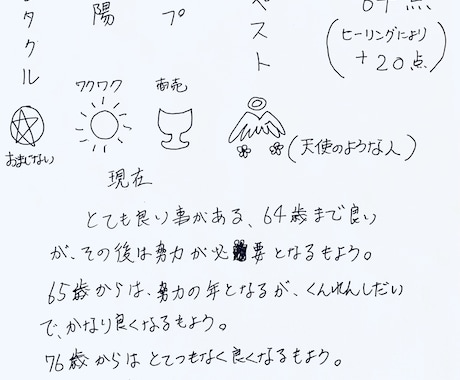 タクル
陽
プ
ペスト
(ヒーリングにより
+20点)
ワクワク
商売
おまじない
(天使のような人)
現在
とても良い事がある、64歳まで良い
が、その後は努力が必要となるもよう。
65歳からは、努力の年となるが、くんれんしだい
で、かなり良くなるもよう。
76歳からはとてつもなく良くなるもよう。